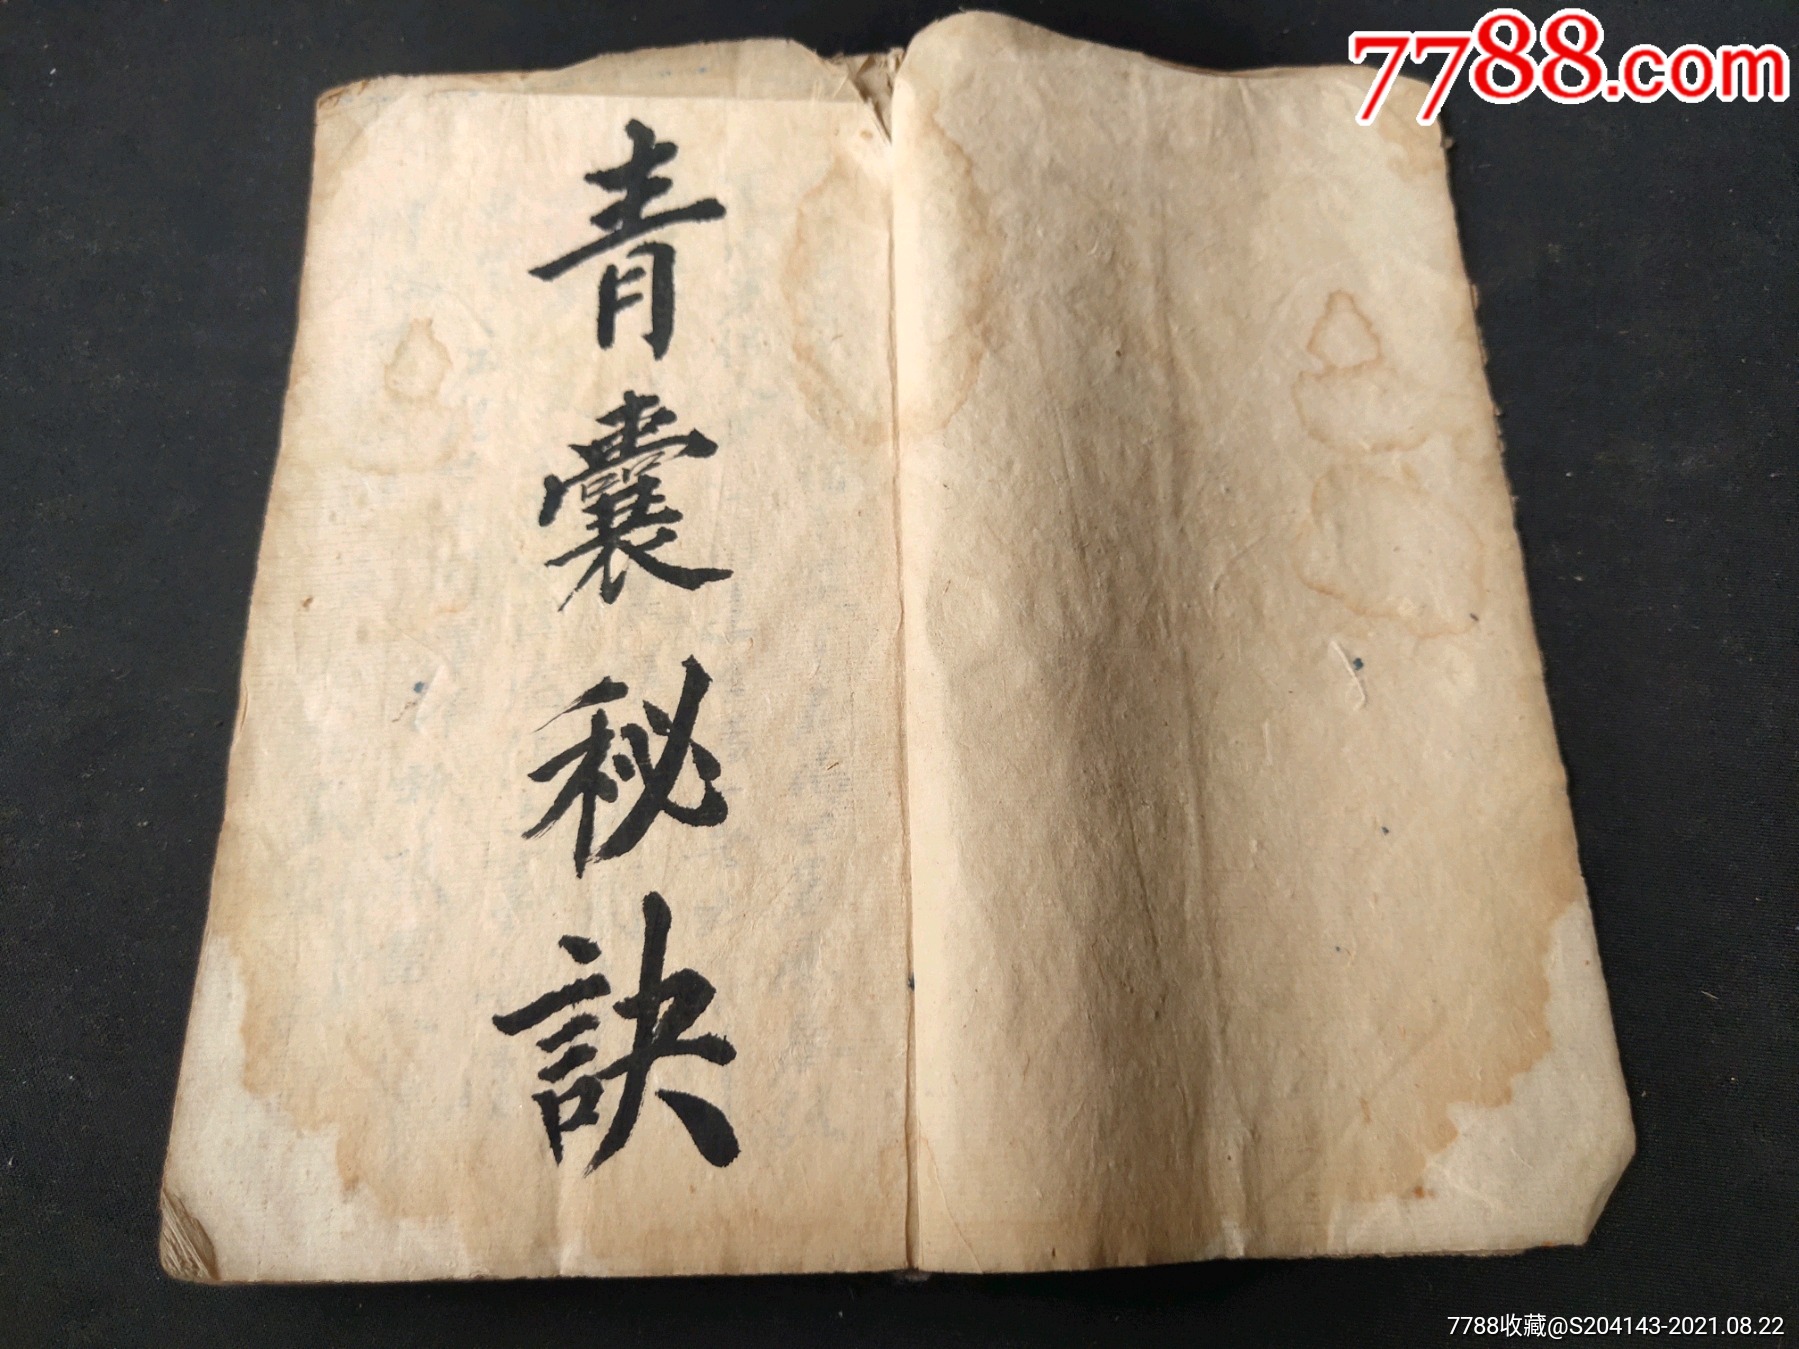 7788.com
青囊秘訣
7788收藏@S204143-2021.08.22